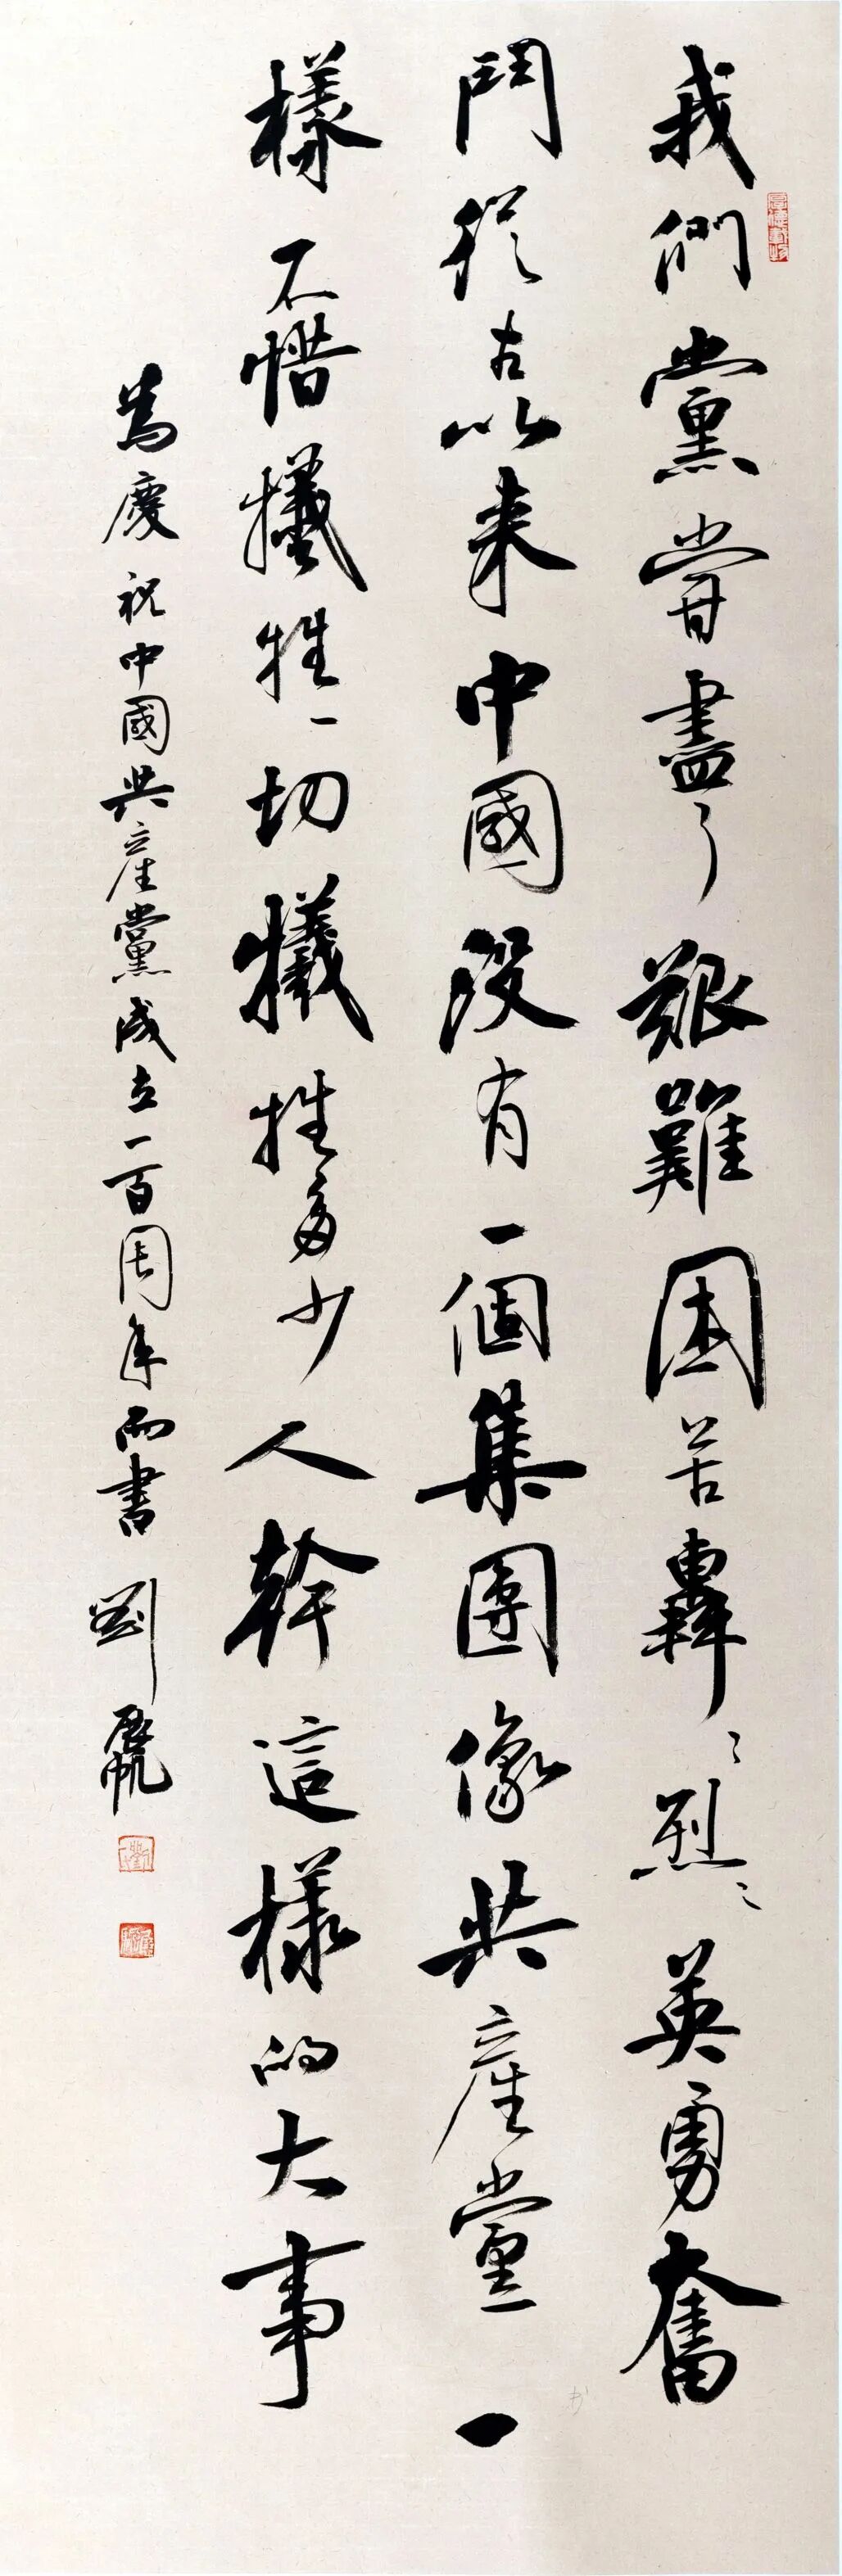 我們黨嘗盡了艱難困苦轟々烈々英勇奮
鬥從古以来中國没有一個集團像共產黨一
樣不惜犧牲一切犧牲多少人幹這樣的大事
為慶祝中國共產黨成立一百周年而書 劉